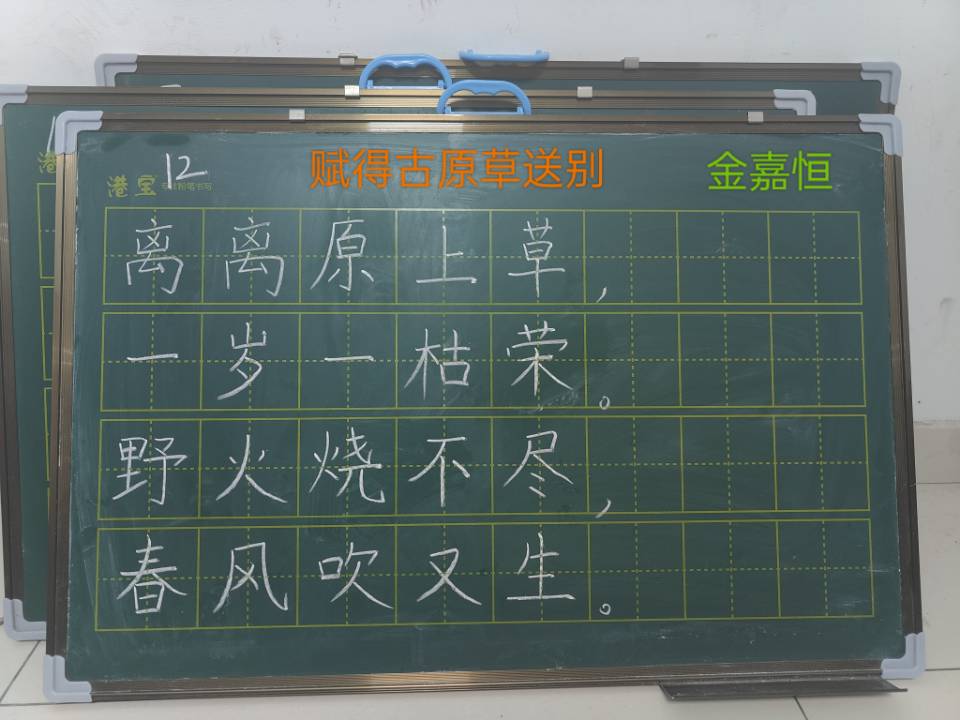 12 赋得古原草送别 金嘉恒
港宝 专供粉笔书写
离离原上草，
一岁一枯荣。
野火烧不尽，
春风吹又生。